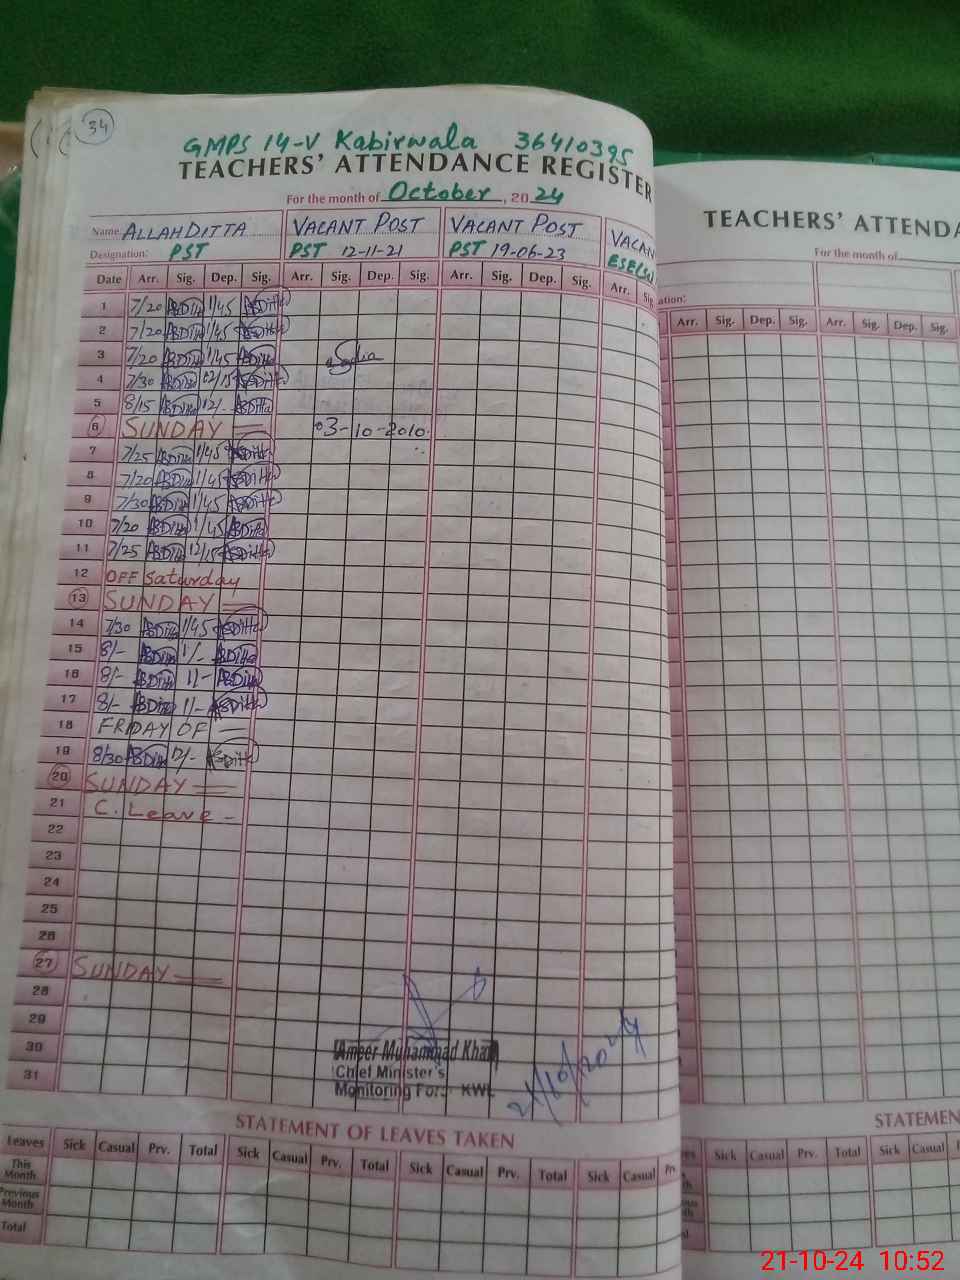 34
GMPS 14-V Kabirwala 36410395
TEACHERS' ATTENDANCE REGISTER
For the month of October, 2024
Name ALLAH DITTA VACANT POST VACANT POST VACAN
Designation: PST PST 12-11-21 PST 19-06-23
Date Arr. Sig. Dep. Sig. Arr. Sig. Dep. Sig. Arr. Sig. Dep. Sig. Arr. Sig.
1 7/20 ABDitta 1/45 ABDitta
2 7/20 ABDitta 1/45 ABDitta
3 7/20 ABDitta 1/45 ABDitta Sadia
4 7/30 ABDitta 12/15 ABDitta
5 8/15 ABDitta 12/- ABDitta
6 SUNDAY 03-10-2010.
7 7/25 ABDitta 1/45 ABDitta
8 7/20 ABDitta 1/45 ABDitta
9 7/30 ABDitta 1/45 ABDitta
10 7/20 ABDitta 1/45 ABDitta
11 7/25 ABDitta 12/15 ABDitta
12 OFF Saturday
13 SUNDAY
14 7/30 ABDitta 1/45 ABDitta
15 8/- ABDitta 1/- ABDitta
16 8/- ABDitta 1/- ABDitta
17 8/- ABDitta 1/- ABDitta
18 FRIDAY OF
19 8/30 ABDitta 12/- ABDitta
20 SUNDAY
21 C. Leave -
22
23
24
25
26
27 SUNDAY
28
29
30
31
Ameer Muhammad Khan
Chief Minister's
Monitoring Force KWL
21/10/2024
STATEMENT OF LEAVES TAKEN
Leaves Sick Casual Prv. Total Sick Casual Prv. Total Sick Casual Prv. Total Sick Casual Prv.
This Month
Previous Month
Total
TEACHERS' ATTENDA
For the month of
ation:
Arr. Sig. Dep. Sig. Arr. Sig. Dep. Sig.
STATEMEN
Sick Casual Prv. Total Sick Casual
21-10-24 10:52